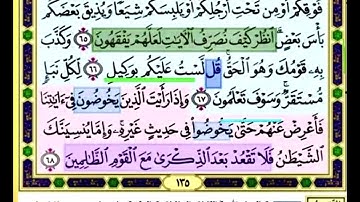 فَوْقِكُمْ أَوْ مِن تَحْتِ أَرْجُلِكُمْ أَوْ يَلْبِسَكُمْ شِيَعًا وَيُذِيقَ بَعْضَكُم
بَأْسَ بَعْضٍ ٱنظُرْ كَيْفَ نُصَرِّفُ ٱلْـَٔايَـٰتِ لَعَلَّهُمْ يَفْقَهُونَ ٦٥ وَكَذَّبَ
بِهِۦ قَوْمُكَ وَهُوَ ٱلْحَقُّ قُل لَّسْتُ عَلَيْكُم بِوَكِيلٍ ٦٦ لِّكُلِّ نَبَإٍ
مُّسْتَقَرٌّ وَسَوْفَ تَعْلَمُونَ ٦٧ وَإِذَا رَأَيْتَ ٱلَّذِينَ يَخُوضُونَ فِىٓ ءَايَـٰتِنَا
فَأَعْرِضْ عَنْهُمْ حَتَّىٰ يَخُوضُوا۟ فِى حَدِيثٍ غَيْرِهِۦ وَإِمَّا يُنسِيَنَّكَ
ٱلشَّيْطَـٰنُ فَلَا تَقْعُدْ بَعْدَ ٱلذِّكْرَىٰ مَعَ ٱلْقَوْمِ ٱلظَّـٰلِمِينَ ٦٨
١٣٥